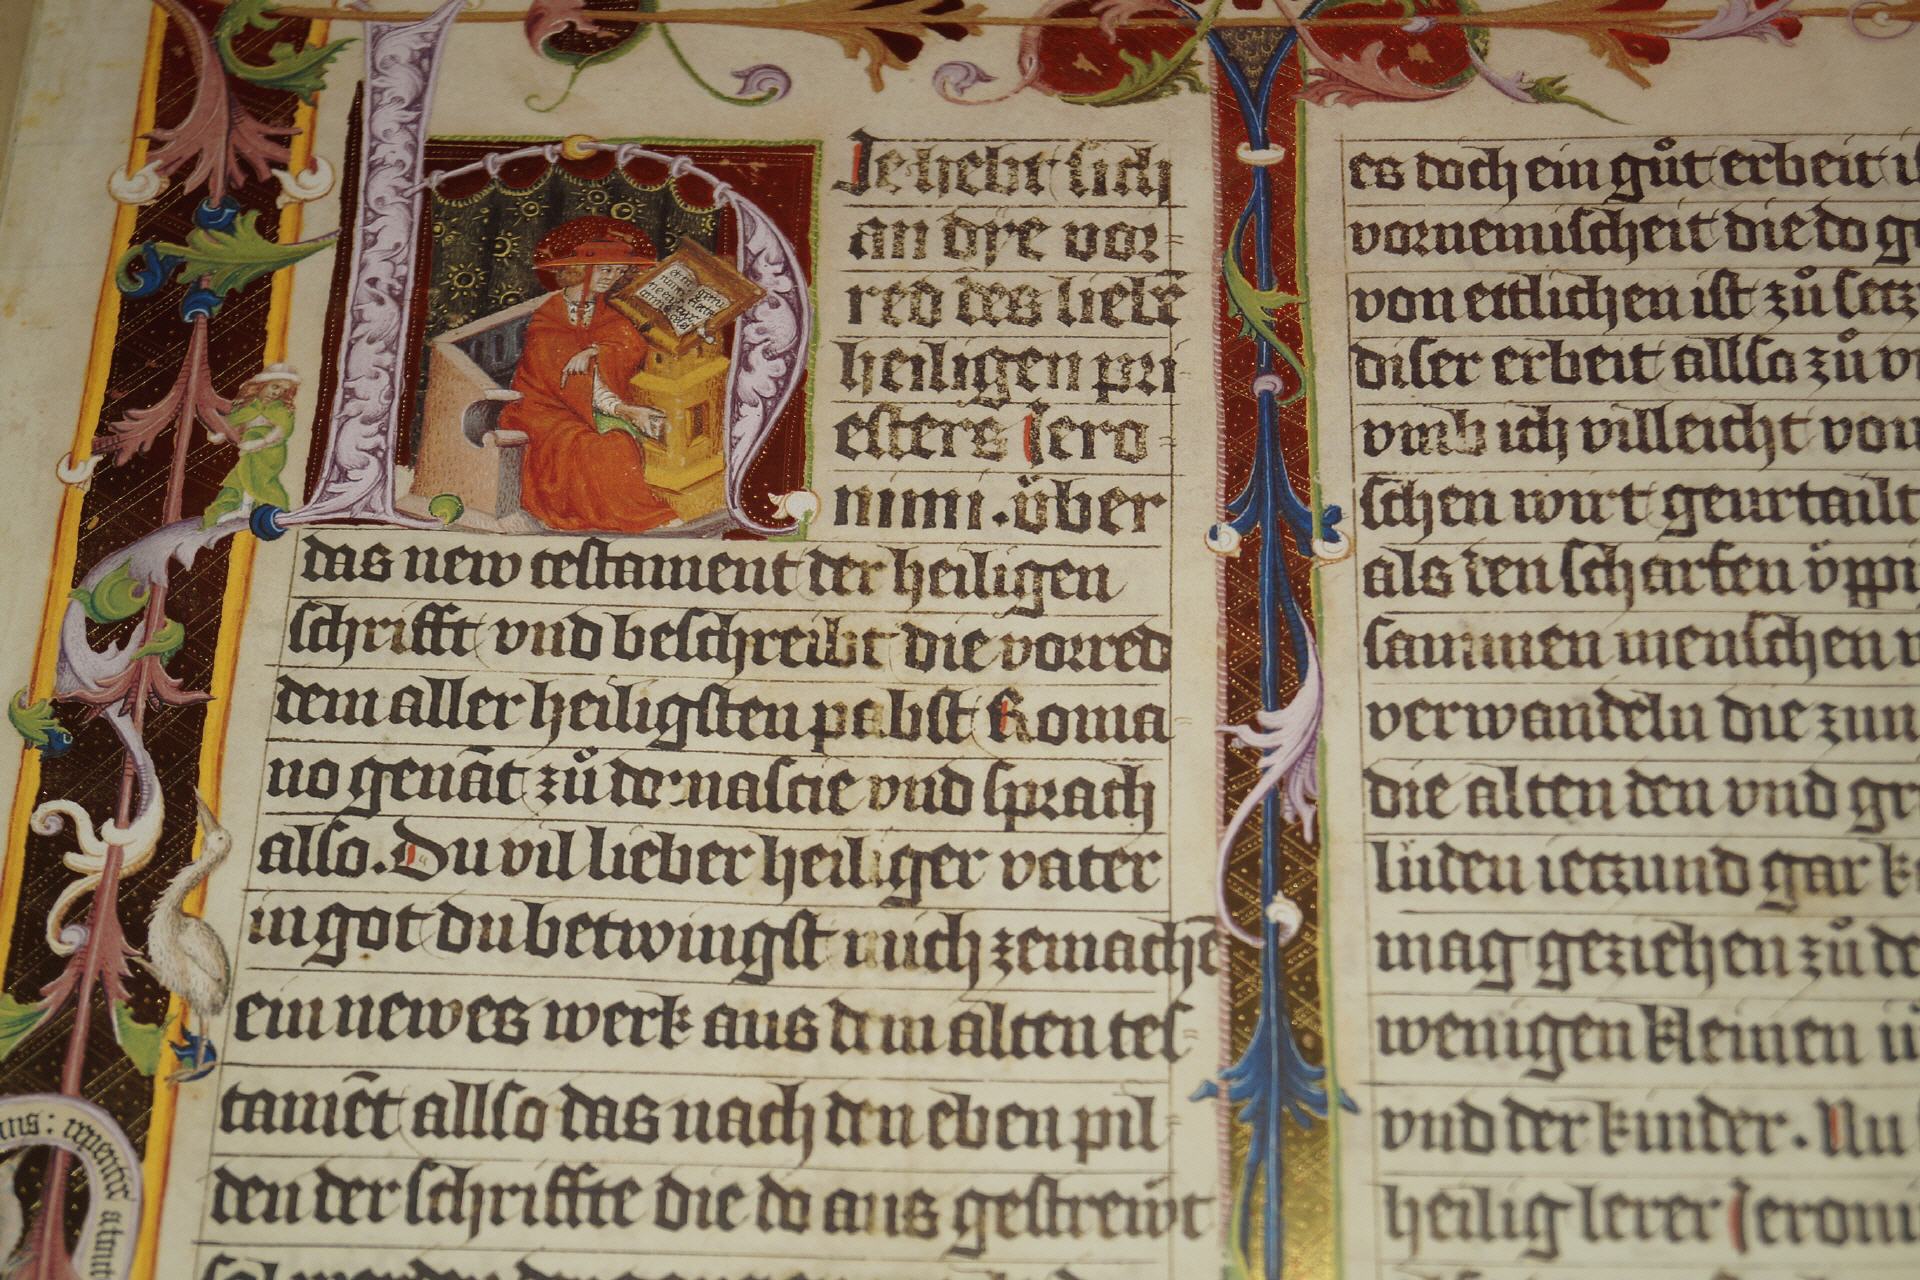 Hie hebt sich
an dye vor=
red des liebē
heiligen pri
esters Jero=
nimi. über
das new testament der heiligen
schrifft vnd beschreibt die vorred
dem aller heiligsten pabst Roma=
no genāt zů der nascie vnd sprach
also. Du vil lieber heiliger vater
in got du betwingst mich zemachē
ein newes werk aus dem alten tes-
tamēt allso das nach den eben pil-
den der schriffte die do aus gestrewt
es doch ein gůt erbeit
vornemischeit die do
von ettlichen ist zů
diser erbeit allso zů
vmb ich villeicht von
schen wirt geurtailt
als den scharfen
sammen menschen
verwandeln die
die alten den vnd
luden ietzund gar
mag geziehen zů
wenigen kleinen
vnd der kinder. Nu
heilig lerer